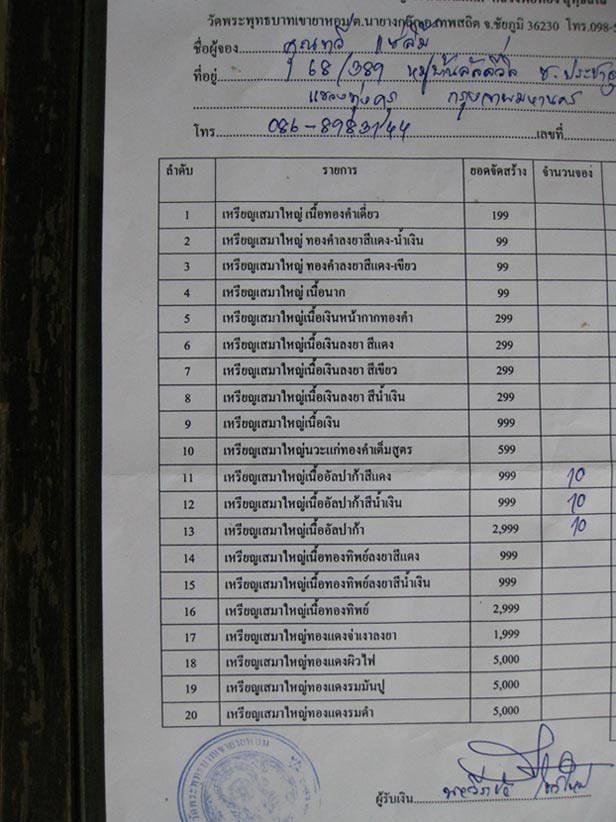 วัดพระพุทธบาทเขายายหอม ต.นายางกลัก อ.เทพสถิต จ.ชัยภูมิ 36230 โทร.098-5
ชื่อผู้จอง คุณทวี แซ่ลิ้ม
ที่อยู่ 68/389 หมู่บ้าน ซ.ประชาอุ
แขวงทุ่งครุ กรุงเทพมหานคร
โทร 086-8983144 เลขที่
ลำดับ รายการ ยอดจัดสร้าง จำนวนจอง
1 เหรียญเสมาใหญ่ เนื้อทองคำเดี่ยว 199
2 เหรียญเสมาใหญ่ ทองคำลงยาสีแดง-น้ำเงิน 99
3 เหรียญเสมาใหญ่ ทองคำลงยาสีแดง-เขียว 99
4 เหรียญเสมาใหญ่ เนื้อนาก 99
5 เหรียญเสมาใหญ่เนื้อเงินหน้ากากทองคำ 299
6 เหรียญเสมาใหญ่เนื้อเงินลงยา สีแดง 299
7 เหรียญเสมาใหญ่เนื้อเงินลงยา สีเขียว 299
8 เหรียญเสมาใหญ่เนื้อเงินลงยา สีน้ำเงิน 299
9 เหรียญเสมาใหญ่เนื้อเงิน 999
10 เหรียญเสมาใหญ่นวะแก่ทองคำเต็มสูตร 599
11 เหรียญเสมาใหญ่เนื้ออัลปาก้าสีแดง 999 10
12 เหรียญเสมาใหญ่เนื้ออัลปาก้าสีน้ำเงิน 999 10
13 เหรียญเสมาใหญ่เนื้ออัลปาก้า 2,999 10
14 เหรียญเสมาใหญ่เนื้อทองทิพย์ลงยาสีแดง 999
15 เหรียญเสมาใหญ่เนื้อทองทิพย์ลงยาสีน้ำเงิน 999
16 เหรียญเสมาใหญ่เนื้อทองทิพย์ 2,999
17 เหรียญเสมาใหญ่ทองแดงจ่าเงาลงยา 1,999
18 เหรียญเสมาใหญ่ทองแดงผิวไฟ 5,000
19 เหรียญเสมาใหญ่ทองแดงรมมันปู 5,000
20 เหรียญเสมาใหญ่ทองแดงรมดำ 5,000
วัดพระพุทธบาทเขายายหอม
ผู้รับเงิน